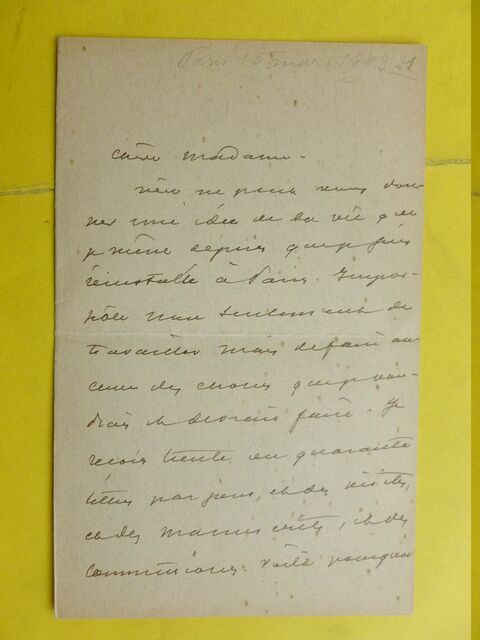 Paris 15 mars 1893 21
Chère Madame -
Rien ne peut vous don-
ner une idée de la vie que
je mène depuis que je suis
réinstallé à Paris. Impos-
sible non seulement de
travailler mais de faire au-
cune des choses que je vou-
drais et devrais faire. Je
reçois trente ou quarante
lettres par jour, et des visites,
et des manuscrits, et des
commissions. Voilà pourquoi